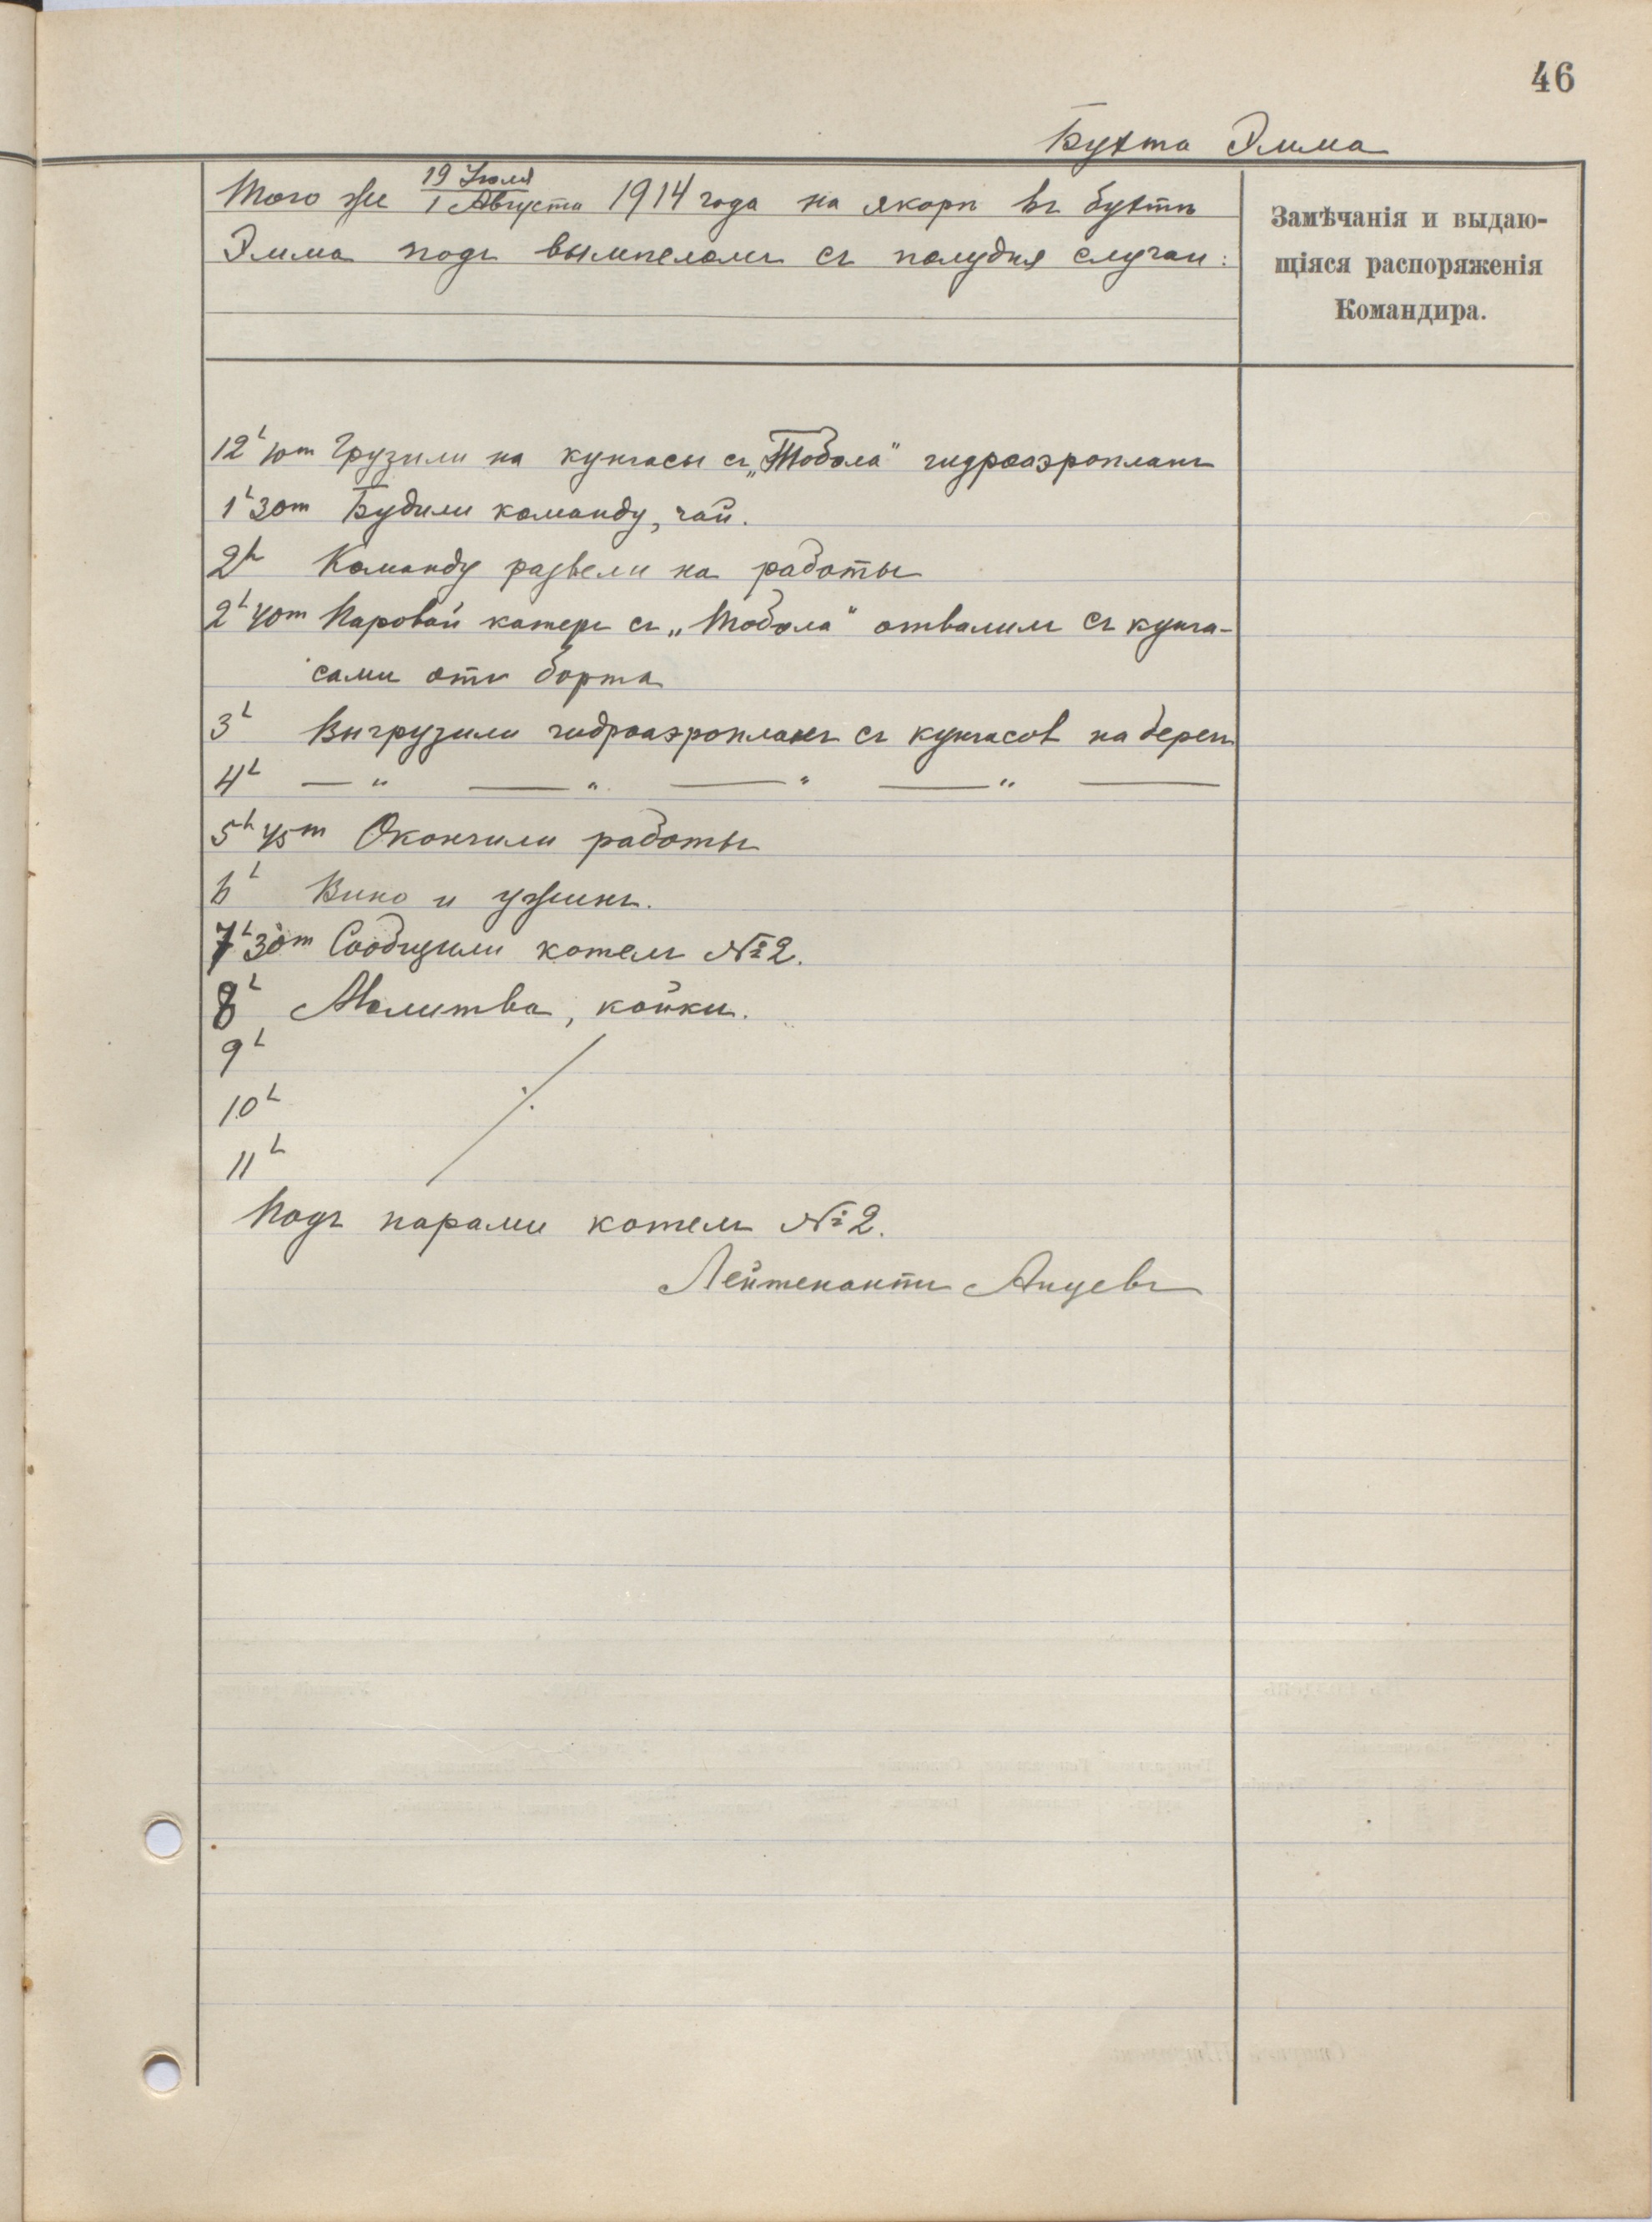 46
Бухта Эмма
Того же 19 Іюля / 1 Августа 1914 года на якорѣ въ бухтѣ
Эмма подъ вымпеломъ съ полудня случаи:
Замѣчанія и выдаю-
щіяся распоряженія
Командира.
12ʰ 10ᵐ Грузили на кунгасы съ „Тобола" гидроаэропланъ
1ʰ 30ᵐ Будили команду, чай.
2ʰ Команду развели на работы
2ʰ 40ᵐ Паровой катеръ съ „Тобола" отвалилъ съ кунга-
сами отъ борта
3ʰ Выгрузили гидроаэропланъ съ кунгасов на берегъ
4ʰ — " — " — " — " —
5ʰ 45ᵐ Окончили работы
6ʰ Вино и ужинъ.
7ʰ 30ᵐ Сообщили котелъ № 2.
8ʰ Молитва, койки.
9ʰ
10ʰ ⁒
11ʰ
Подъ парами котелъ № 2.
Лейтенантъ Анцевъ